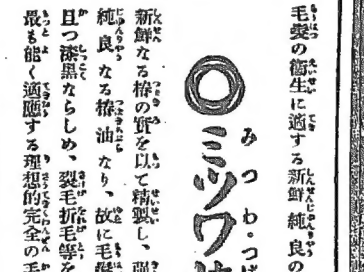 毛髮の衞生に適する新鮮純良の
ミツワ
新鮮なる椿の實を以て精製し、
純良なる椿油なり、故に毛髮
且つ漆黑ならしめ、裂毛折毛等を
最も能く適應する理想的完全の